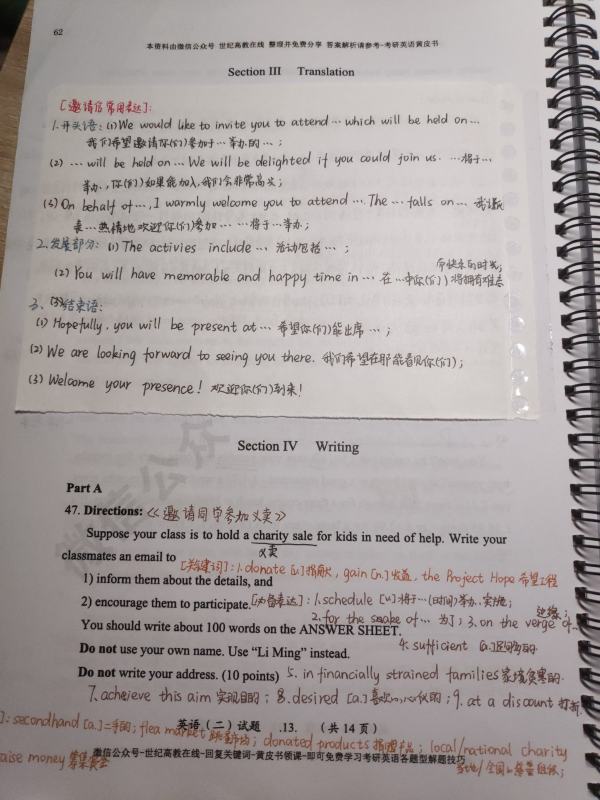 62
本资料由微信公众号 世纪高教在线 整理并免费分享 答案解析请参考-考研英语黄皮书
Section III Translation
[邀请信常用表达]:
1.开头语: (1) We would like to invite you to attend … which will be held on …
我们希望邀请你(们)参加于…举办的…;
(2) … will be held on … We will be delighted if you could join us. …将于…
举办,你(们)如果能加入,我们会非常高兴;
(3) On behalf of …, I warmly welcome you to attend … The … falls on …
…热情地欢迎你(们)参加… …将于…举办;
2.发展部分: (1) The activies include … 活动包括…;
(2) You will have memorable and happy time in … 在…中你(们)将拥有难忘
命快乐的时光;
3. (3)结束语:
(1) Hopefully, you will be present at … 希望你(们)能出席…;
(2) We are looking forward to seeing you there. 我们希望在那能看见你(们);
(3) Welcome your presence! 欢迎你(们)到来!
Section IV Writing
微信公众
Part A
47. Directions: 《邀请同学参加义卖》
Suppose your class is to hold a charity sale for kids in need of help. Write your
义卖
classmates an email to [关键词]: 1. donate [v.] 捐献, gain [n.] 收益, the Project Hope 希望工程
1) inform them about the details, and
2) encourage them to participate. 1. schedule [v.] 将于…(时间)举办,实施;
2. for the smake of … 为了; 3. on the verge of … 边缘;
You should write about 100 words on the ANSWER SHEET.
4. sufficient [a.] 足够的
Do not use your own name. Use "Li Ming" instead.
Do not write your address. (10 points) 5. in financially strained families 家境贫寒的
7. acheieve this aim 实现目的; 8. desired [a.] 喜欢的,心仪的; 9. at a discount 打折
英语(二)试题 .13. (共14页)
]: secondhand [a.] 二手的; flea market 跳蚤市场; donated products 捐赠产品; local/national charity
微信公众号-世纪高教在线-回复关键词-黄皮书领课-即可免费学习考研英语各题型解题技巧
aise money 筹集资金
当地/全国的慈善组织;